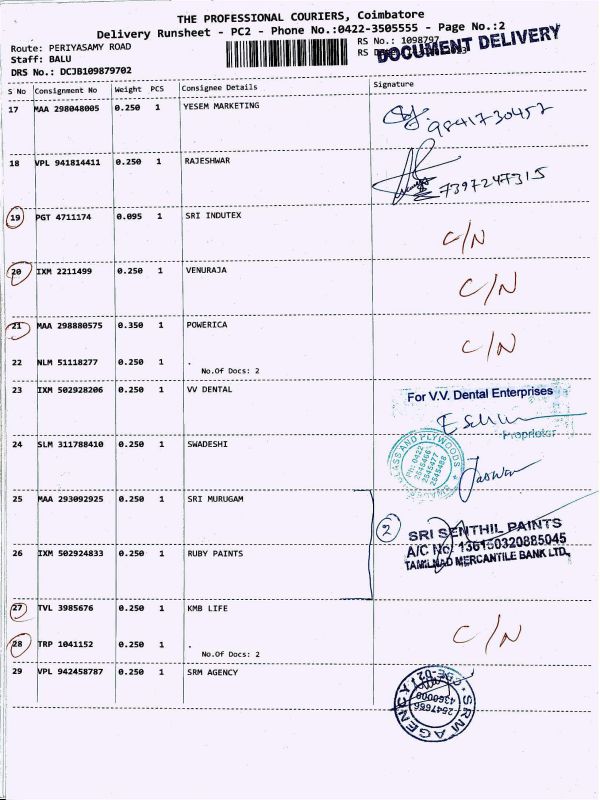 THE PROFESSIONAL COURIERS, Coimbatore
Delivery Runsheet - PC2 - Phone No.:0422-3505555 - Page No.:2
Route: PERIYASAMY ROAD
Staff: BALU
DRS No.: DCJB109879702
RS No.: 1098797
RS
DOCUMENT DELIVERY
S No Consignment No Weight PCS Consignee Details Signature
17 MAA 298048005 0.250 1 YESEM MARKETING
9841730457
18 VPL 941814411 0.250 1 RAJESHWAR
7397247315
19 PGT 4711174 0.095 1 SRI INDUTEX C/N
20 IXM 2211499 0.250 1 VENURAJA C/N
21 MAA 298880575 0.350 1 POWERICA C/N
22 NLM 51118277 0.250 1 .
No.Of Docs: 2
23 IXM 502928206 0.250 1 VV DENTAL
For V.V. Dental Enterprises
Proprietor
24 SLM 311788410 0.250 1 SWADESHI
GLASS AND PLYWOODS
PH: 0422
2545466
2545477
2545488
25 MAA 293092925 0.250 1 SRI MURUGAM
2
SRI SENTHIL PAINTS
A/C No: 136150320885045
TAMILNAD MERCANTILE BANK LTD.,
26 IXM 502924833 0.250 1 RUBY PAINTS
27 TVL 3985676 0.250 1 KMB LIFE C/N
28 TRP 1041152 0.250 1 .
No.Of Docs: 2
29 VPL 942458787 0.250 1 SRM AGENCY
SRM AGENCY
2547666
4360000